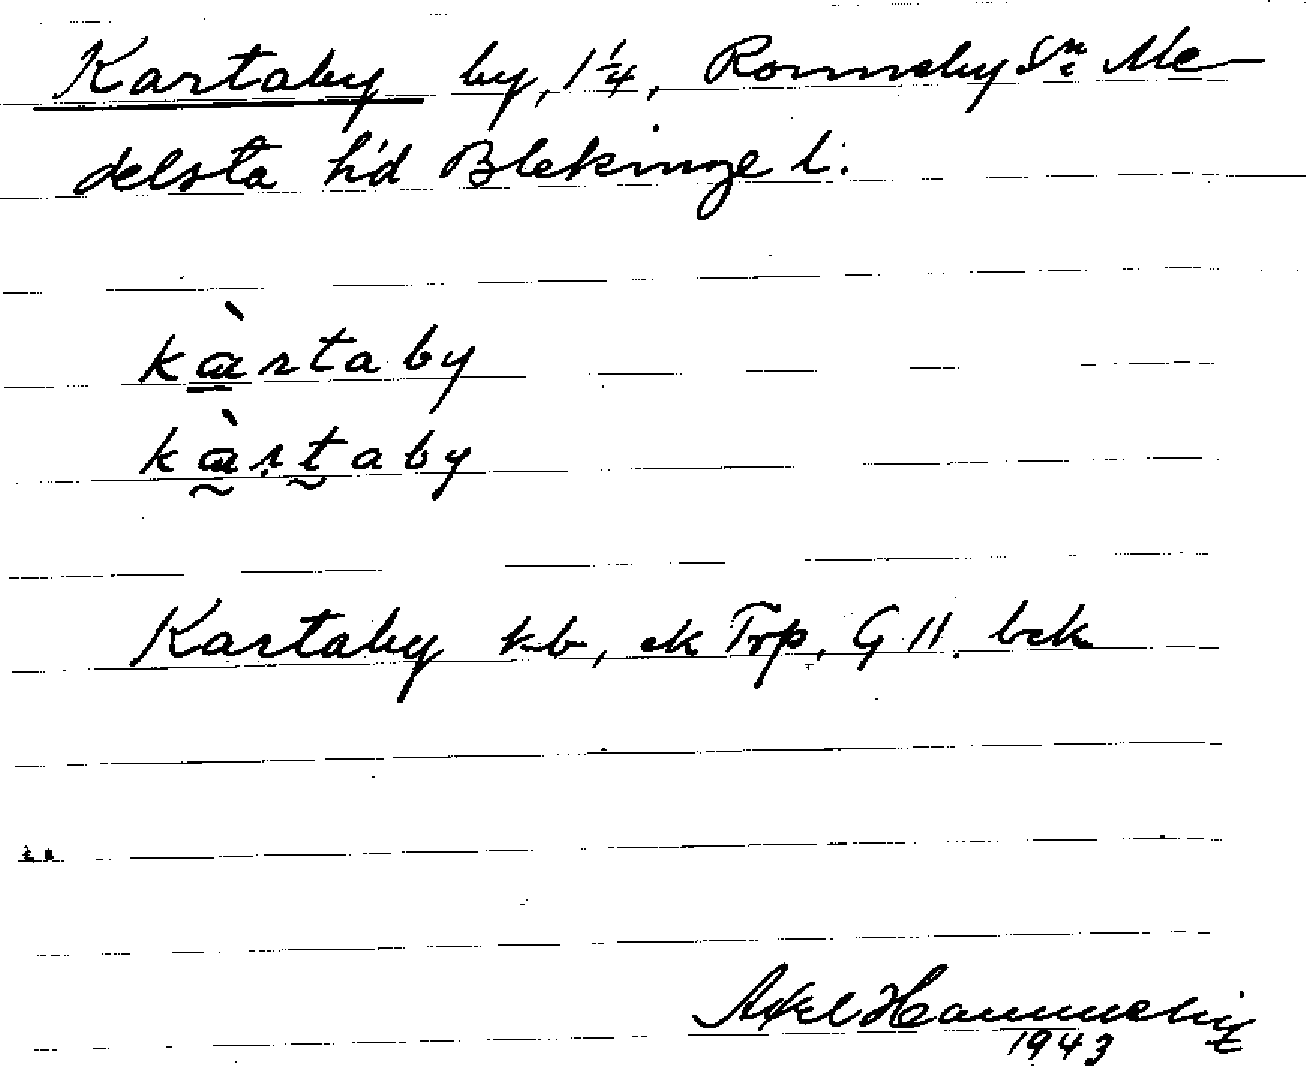 Kartaby by, 1 1/4, Ronneby Sn Me-
delsta hd Blekinge l.
kàrtaby
kàrtaby
Kartaby kb, ek Trp, G 11. bek
Axel
1943